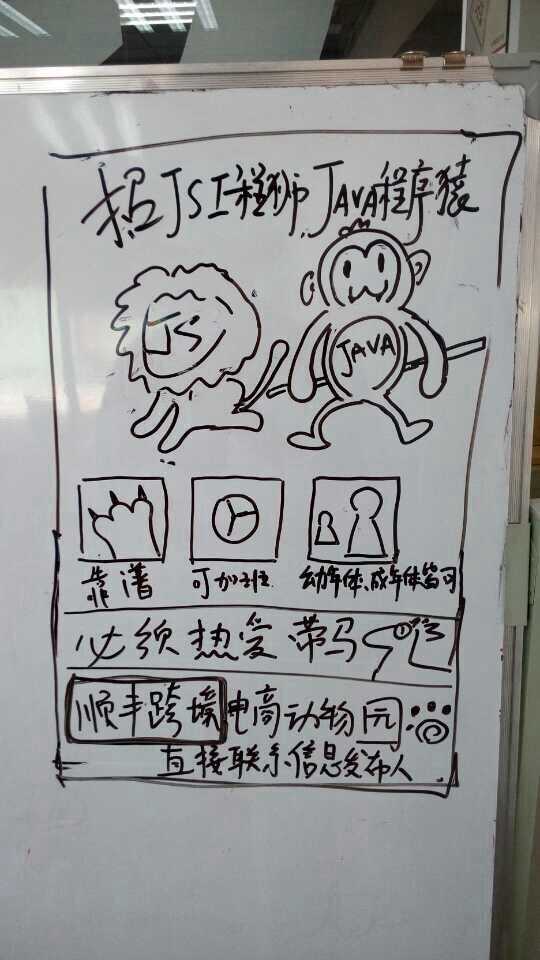 招JS工程狮JAVA程序猿
JS
JAVA
靠谱
可加班
幼年体、成年体皆可
必须热爱带马
顺丰跨境电商动物园
直接联系信息发布人